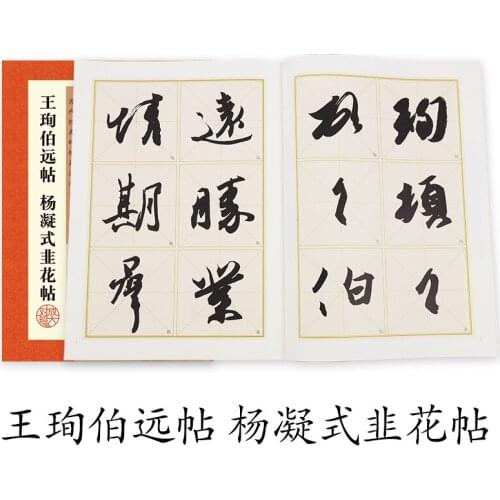 王珣伯远帖 杨凝式韭花帖
珣頓首
頓首伯
遠勝業
情期群
王珣伯远帖 杨凝式韭花帖